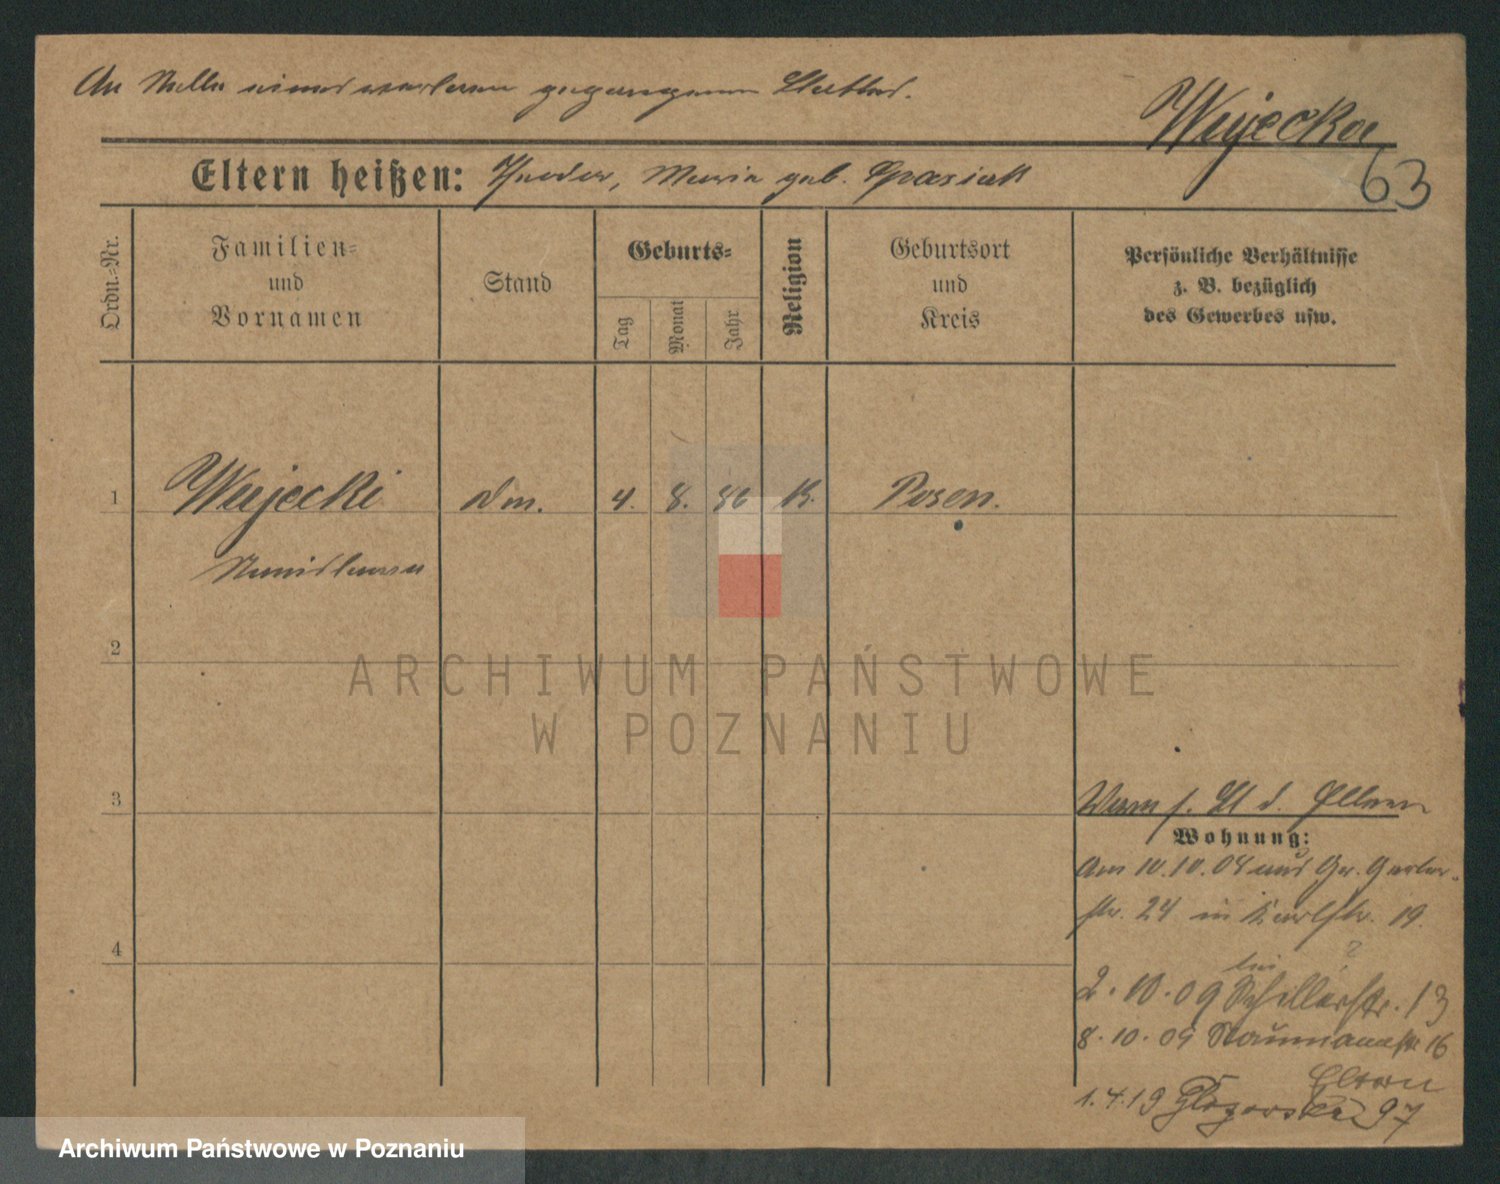 An Stelle eines verloren gegangenen Blattes.
Wujecka
63
Eltern heißen: Theodor, Maria geb. Spasiak
Ordn.-Nr.
Familien-
und
Vornamen
Stand
Geburts-
Tag
Monat
Jahr
Religion
Geburtsort
und
Kreis
Persönliche Verhältnisse
z. B. bezüglich
des Gewerbes usw.
1 Wujecki 4. 8. 86 K. Posen.
Stanislaus
2
ARCHIWUM PAŃSTWOWE
W POZNANIU
3
d. Eltern
Wohnung:
Am 10.10.04 aus Gr. Gerber-
str. 24 in Karlstr. 19.
bei ?
2.10.09 Schillerstr. 13
8.10.09 Naumannstr 16
Eltern
1.4.19 Glogowska 97
4
Archiwum Państwowe w Poznaniu